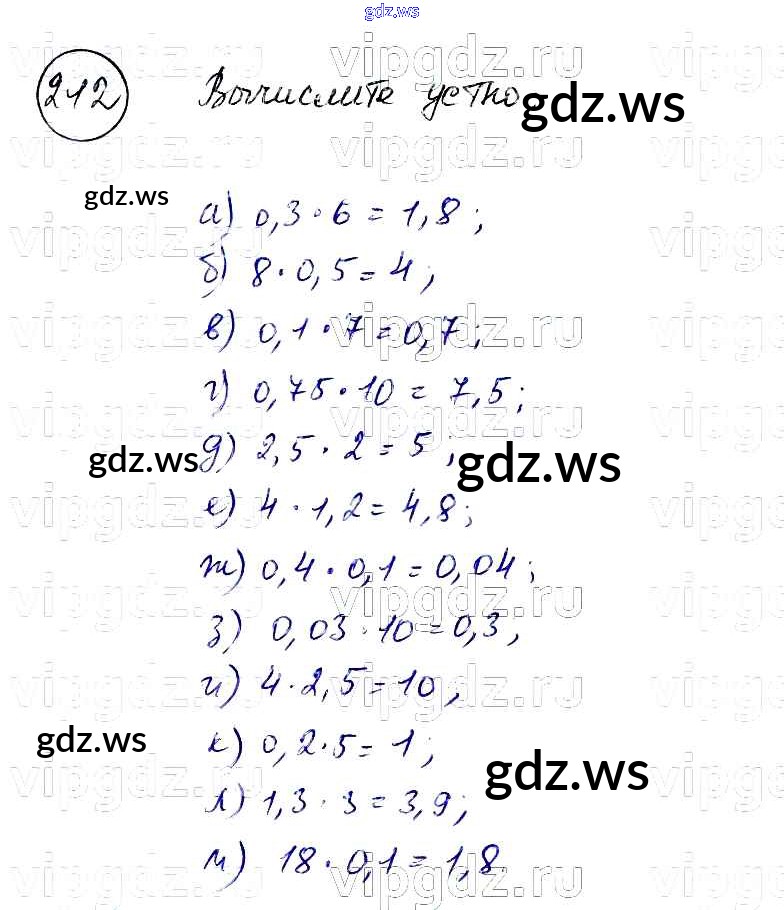 gdz.ws
212 Вычислите устно
gdz.ws
gdz.ws
а) 0,3 · 6 = 1,8;
б) 8 · 0,5 = 4;
в) 0,1 · 7 = 0,7;
г) 0,75 · 10 = 7,5;
д) 2,5 · 2 = 5;
gdz.ws
gdz.ws
е) 4 · 1,2 = 4,8;
ж) 0,4 · 0,1 = 0,04;
з) 0,03 · 10 = 0,3,
и) 4 · 2,5 = 10,
gdz.ws
к) 0,2 · 5 = 1;
gdz.ws
л) 1,3 · 3 = 3,9;
м) 18 · 0,1 = 1,8.
vipgdz.ru